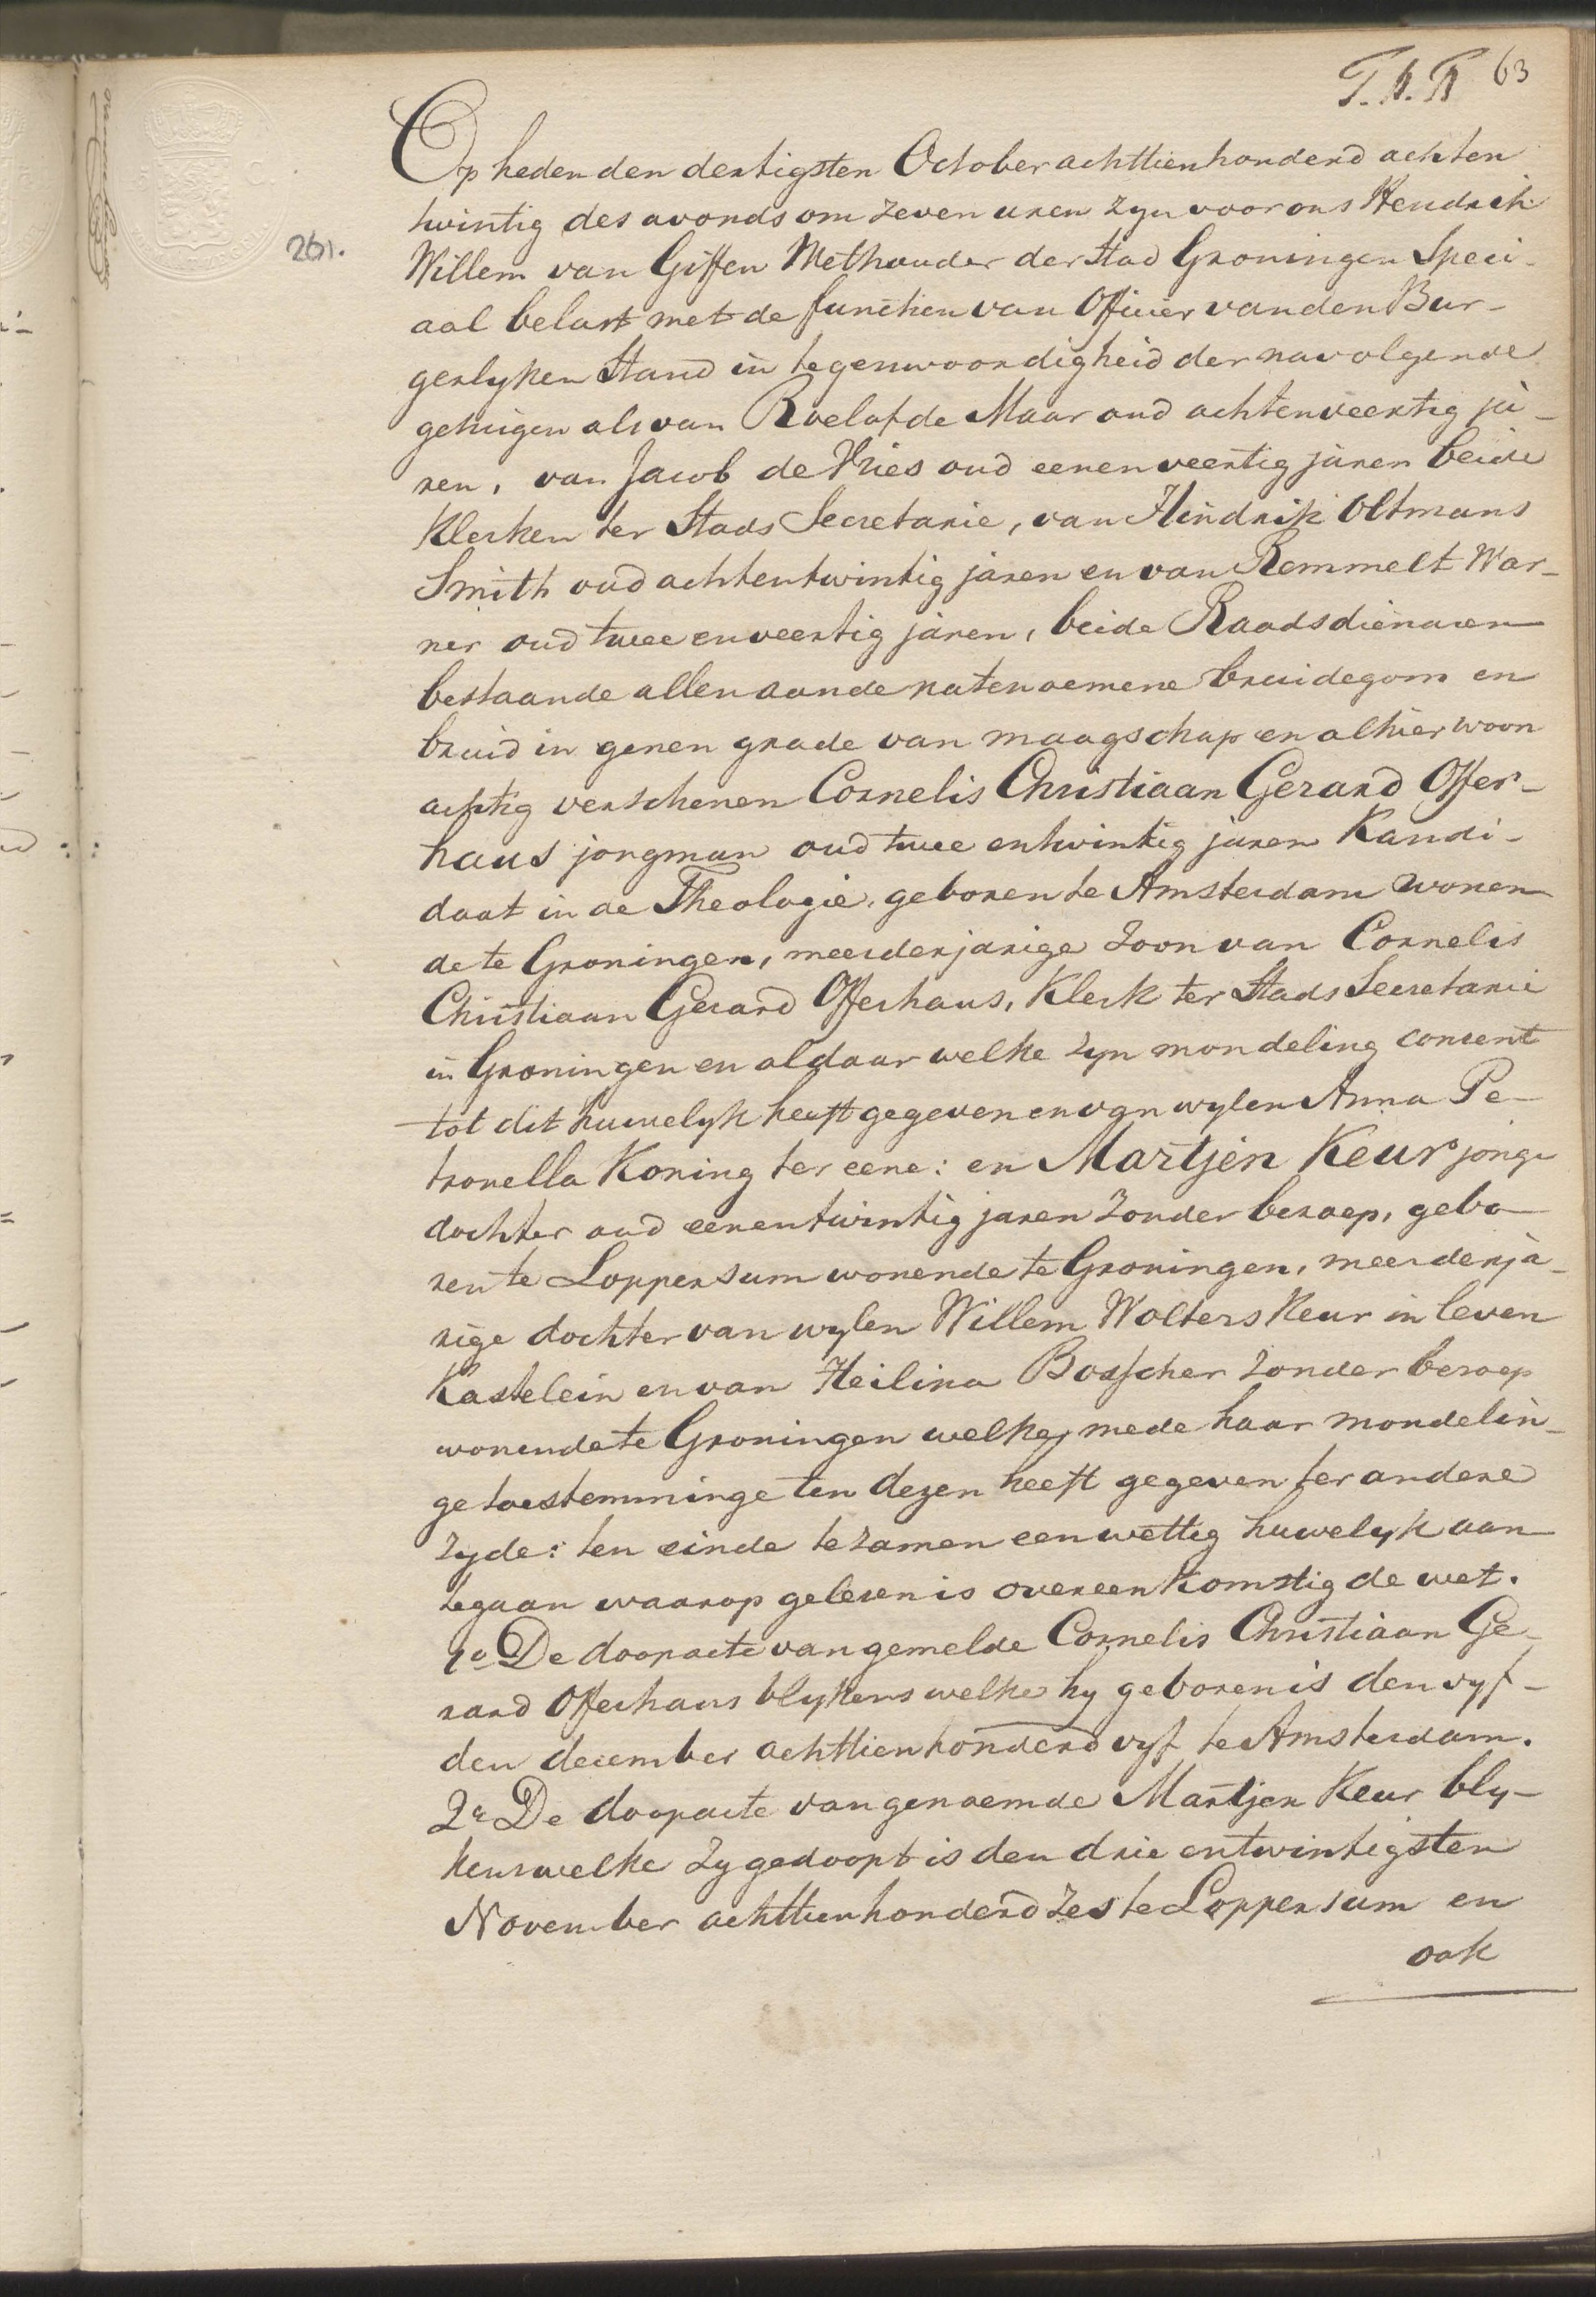 63
Op heden den dertigsten October achttienhonderd achten
twintig des avonds om zeven uren zyn voor ons Hendrik
261.
Willem van Giffen Wethouder der Stad Groningen Speci-
aal belast met de functien van Officier van den Bur-
gerlyken Stand in tegenwoordigheid der navolgende
getuigen als van Roelof de Maar oud achtenveertig ja-
ren, van Jacob de Vries oud eenenveertig jaren beide
Klerken ter Stads Secretarie, van Hindrik Oltmans
Smith oud achtentwintig jaren en van Remmelt War-
ner oud twee enveertig jaren, beide Raadsdienaren
bestaande allen aande natenoemene bruidegom en
bruid in genen grade van maagschap en alhier woon
achtig verschenen Cornelis Christiaan Gerard Offer-
haus jongman oud twee entwintig jaren Kandi-
daat in de Theologie, geboren te Amsterdam wonen
de te Groningen, meerderjarige Zoon van Cornelis
Christiaan Gerard Offerhaus, Klerk ter Stads Secretarie
in Groningen en aldaar welke zyn mondeling consent
tot dit huwelyk heeft gegeven en van wylen Anna Pe-
tronella Koning ter eene: en Martjen Keur jonge
dochter oud eenentwintig jaren Zonder beroep, gebo
ren te Loppersum wonende te Groningen, meerderja-
rige dochter van wylen Willem Wolters Keur in leven
Kastelein en van Heilina Bosscher Zonder beroep
wonende te Groningen welke mede haar mondelin-
ge toestemminge ten dezen heeft gegeven ter andere
zyde: ten einde te zamen een wettig huwelyk aan
tegaan waarop gelesen is overeenkomstig de wet.
1e De doopacte van gemelde Cornelis Christiaan Ge-
rard Offerhaus blykens welke hy geboren is den vyf-
den december achttienhonderd vyf te Amsterdam.
2e De doopacte van genoemde Martjen Keur bly-
kens welke Zy gedoopt is den drie entwintigsten
November achttienhonderd Zes te Loppersum en
ook